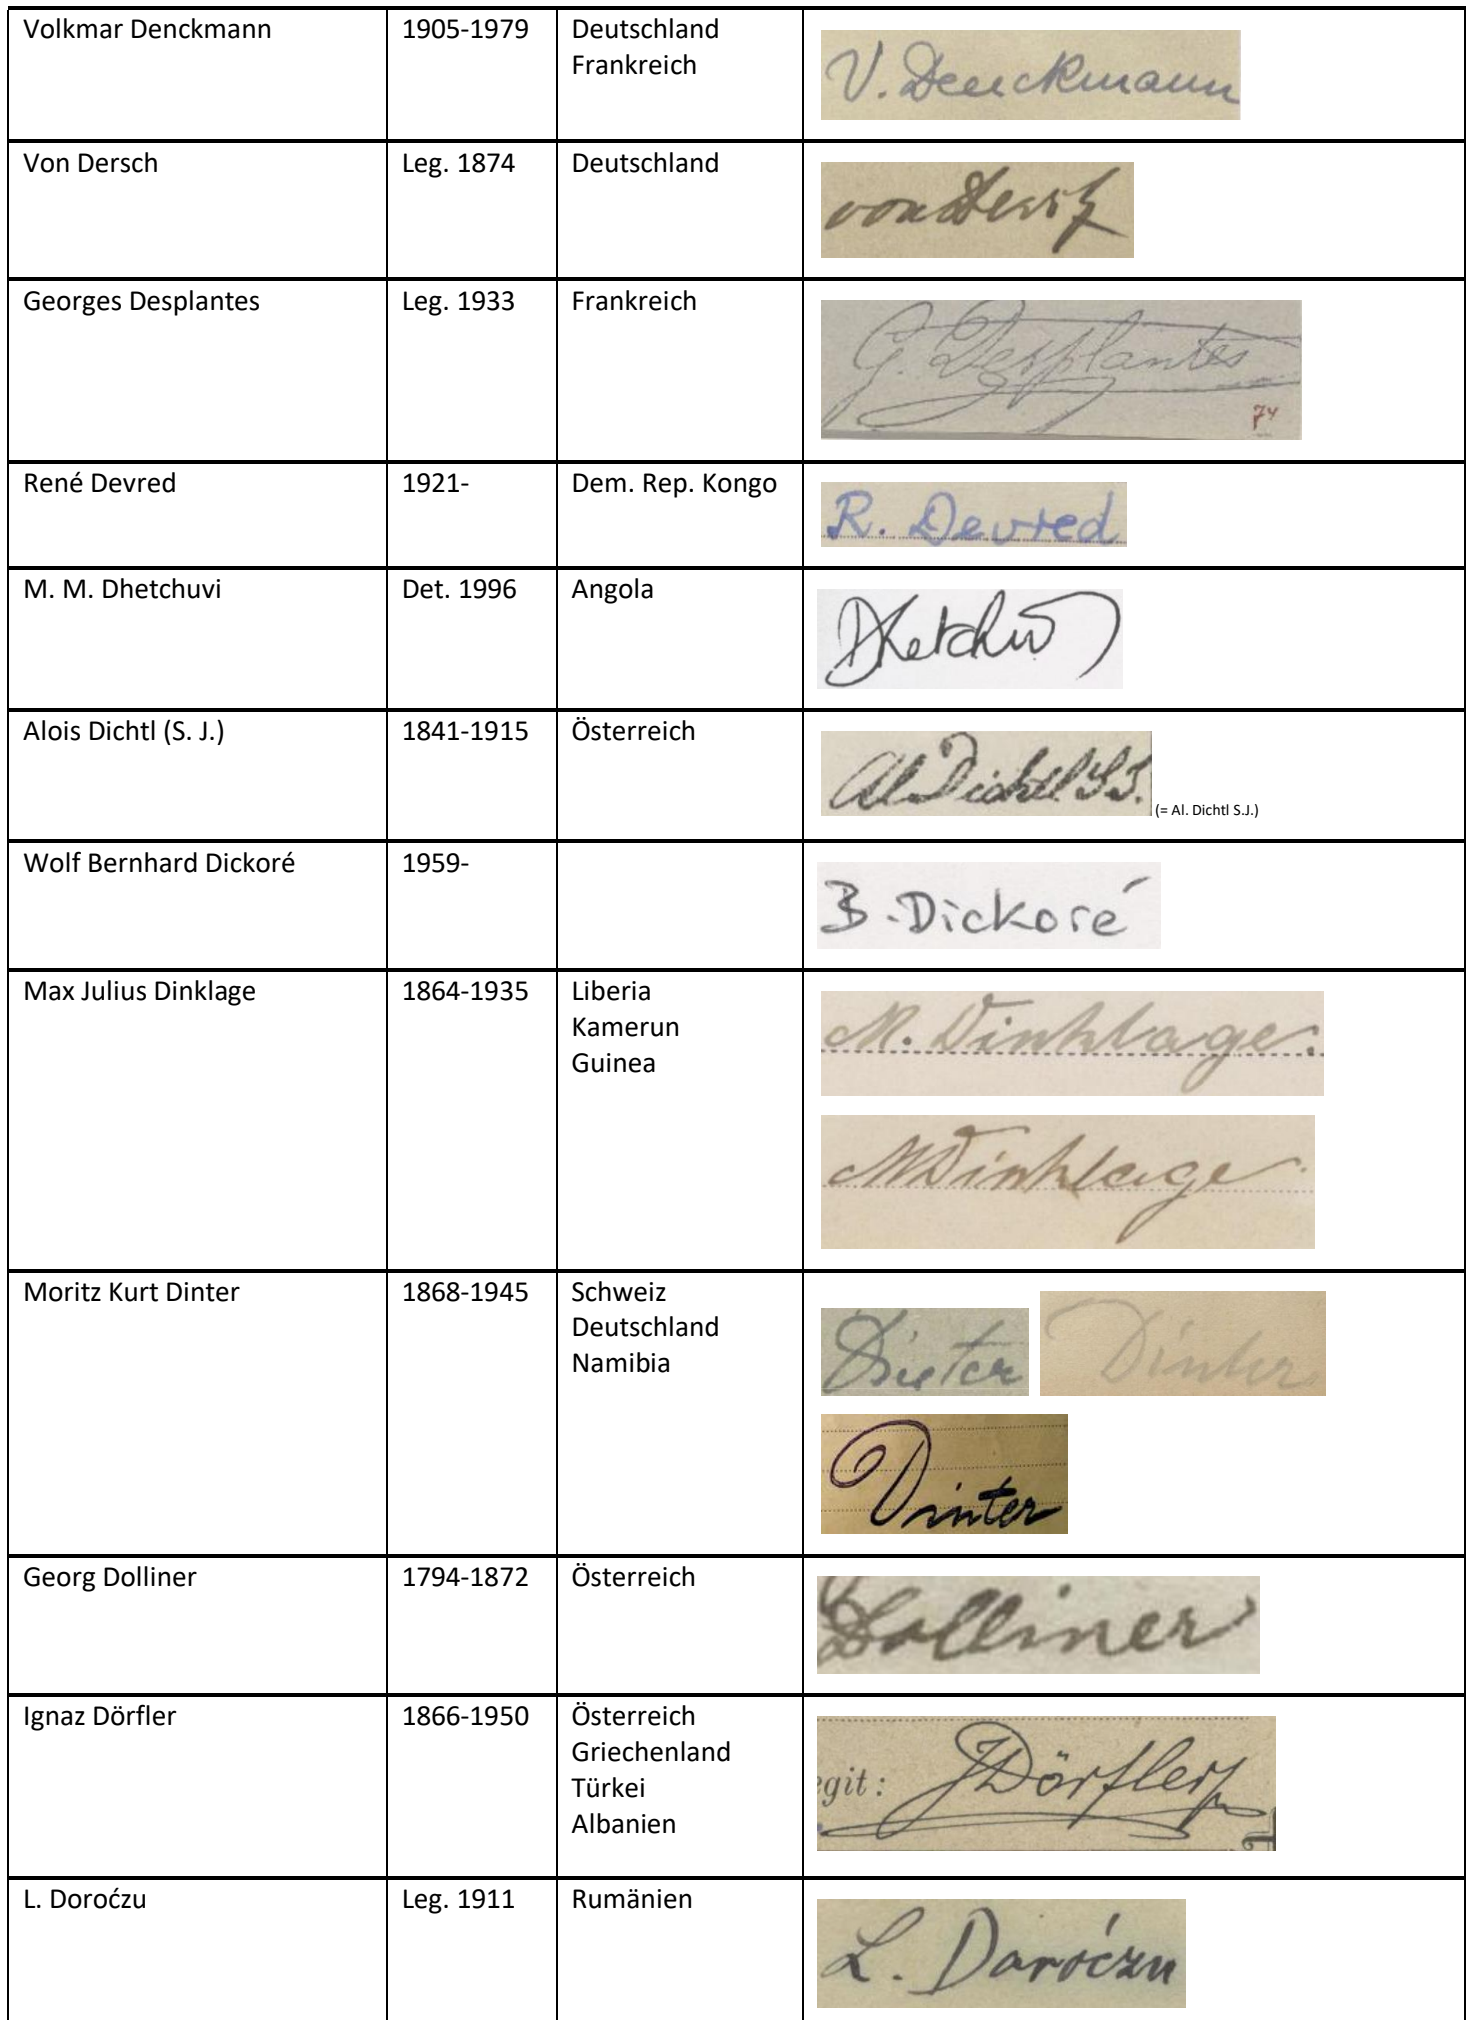 Volkmar Denckmann 1905-1979 Deutschland
Frankreich
V. Denckmann
Von Dersch Leg. 1874 Deutschland
von Dersch
Georges Desplantes Leg. 1933 Frankreich
G. Desplantes
74
René Devred 1921- Dem. Rep. Kongo
R. Devred
M. M. Dhetchuvi Det. 1996 Angola
Dhetchuvi
Alois Dichtl (S. J.) 1841-1915 Österreich
Al Dichtl S.J.
(= Al. Dichtl S.J.)
Wolf Bernhard Dickoré 1959-
B. Dickoré
Max Julius Dinklage 1864-1935 Liberia
Kamerun
Guinea
M. Dinklage.
M Dinklage
Moritz Kurt Dinter 1868-1945 Schweiz
Deutschland
Namibia
Dinter Dinter
Dinter
Georg Dolliner 1794-1872 Österreich
Dolliner
Ignaz Dörfler 1866-1950 Österreich
Griechenland
Türkei
Albanien
egit: J Dörfler
L. Doroćzu Leg. 1911 Rumänien
L. Daroćzu